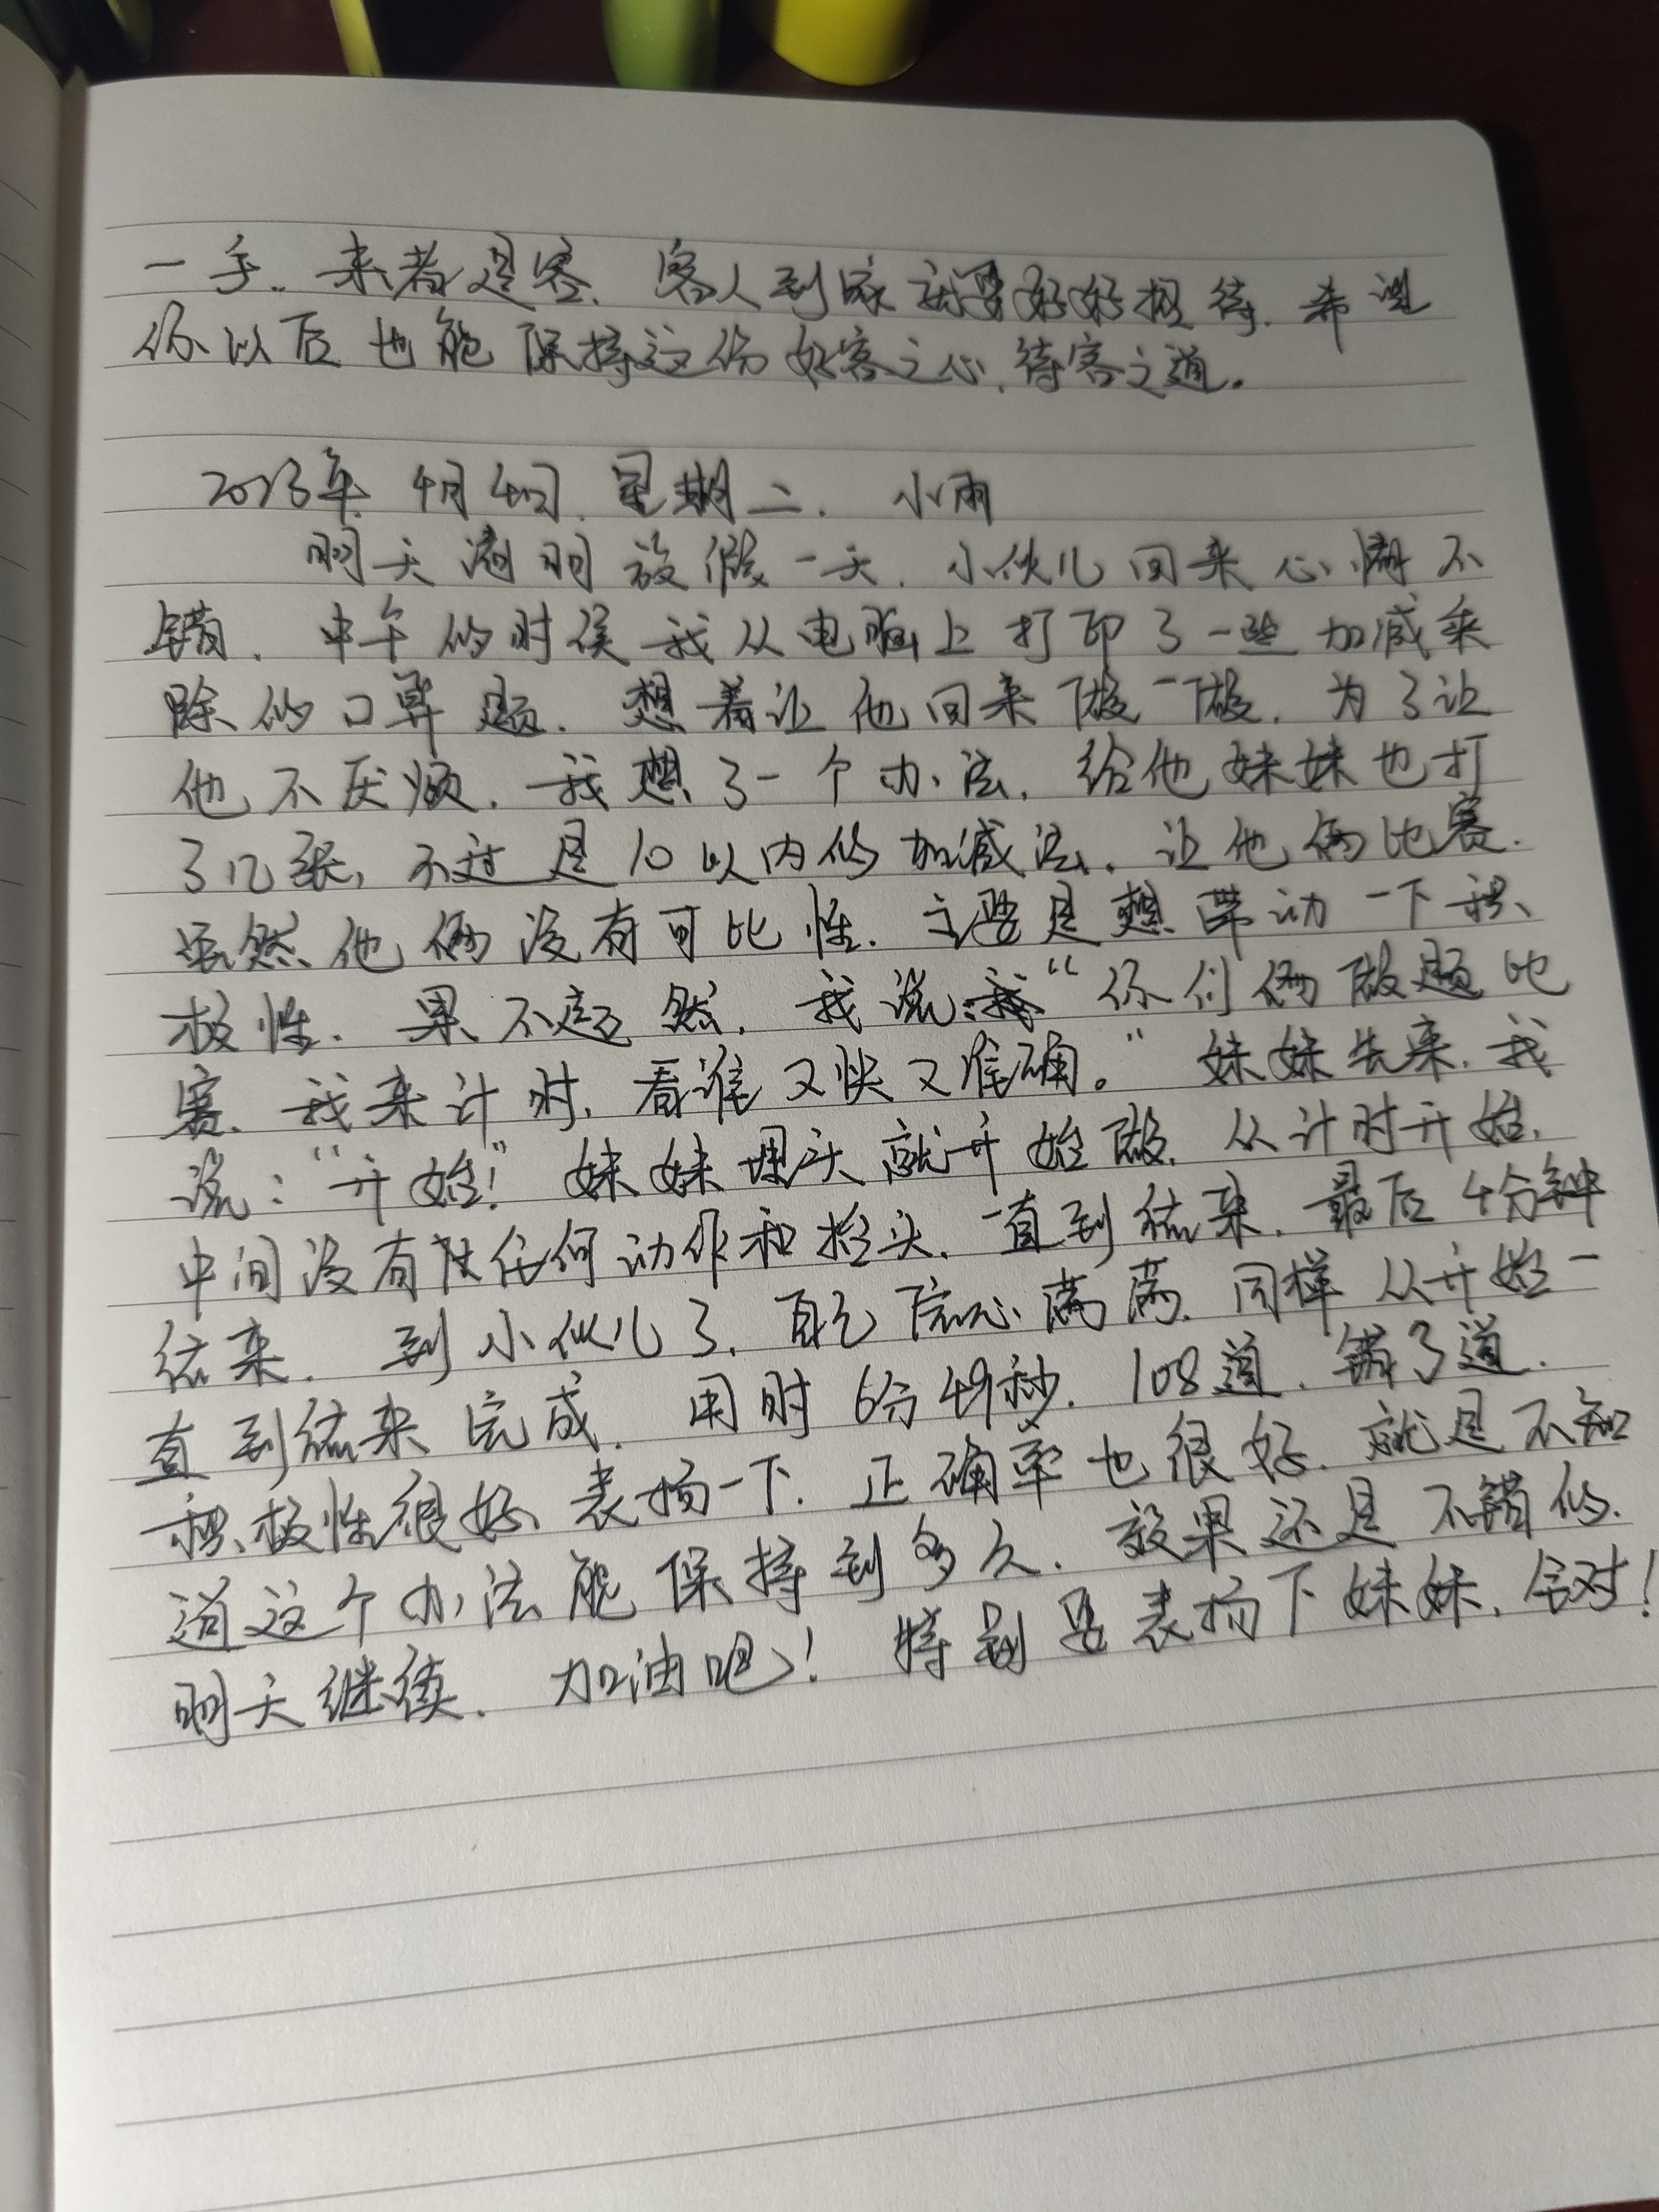 一手。来者是客，客人到家就要好好招待，希望
你以后也能保持这份好客之心，待客之道。
2023年4月4日，星期二，小雨
明天清明放假一天，小伙儿回来心情不
错，中午的时候我从电脑上打印了一些加减乘
除的口算题，想着让他回来做一做，为了让
他不厌烦，我想了一个办法，给他妹妹也打
了几张，不过是10以内的加减法，让他俩比赛.
虽然他俩没有可比性，主要是想带动一下积
极性，果不其然，我说："你们俩做题比
赛，我来计时，看谁又快又准确。"妹妹先来，我
说："开始！"妹妹埋头就开始做，从计时开始，
中间没有任何动作和抬头，一直到结束，最后4分钟
结束，到小伙儿了，自己信心满满，同样从开始一
直到结束完成，用时6分49秒，108道，错了道.
积极性很好，表扬一下，正确率也很好，就是不知
道这个办法能保持到多久，效果还是不错的.
明天继续，加油吧！特别要表扬下妹妹，全对！